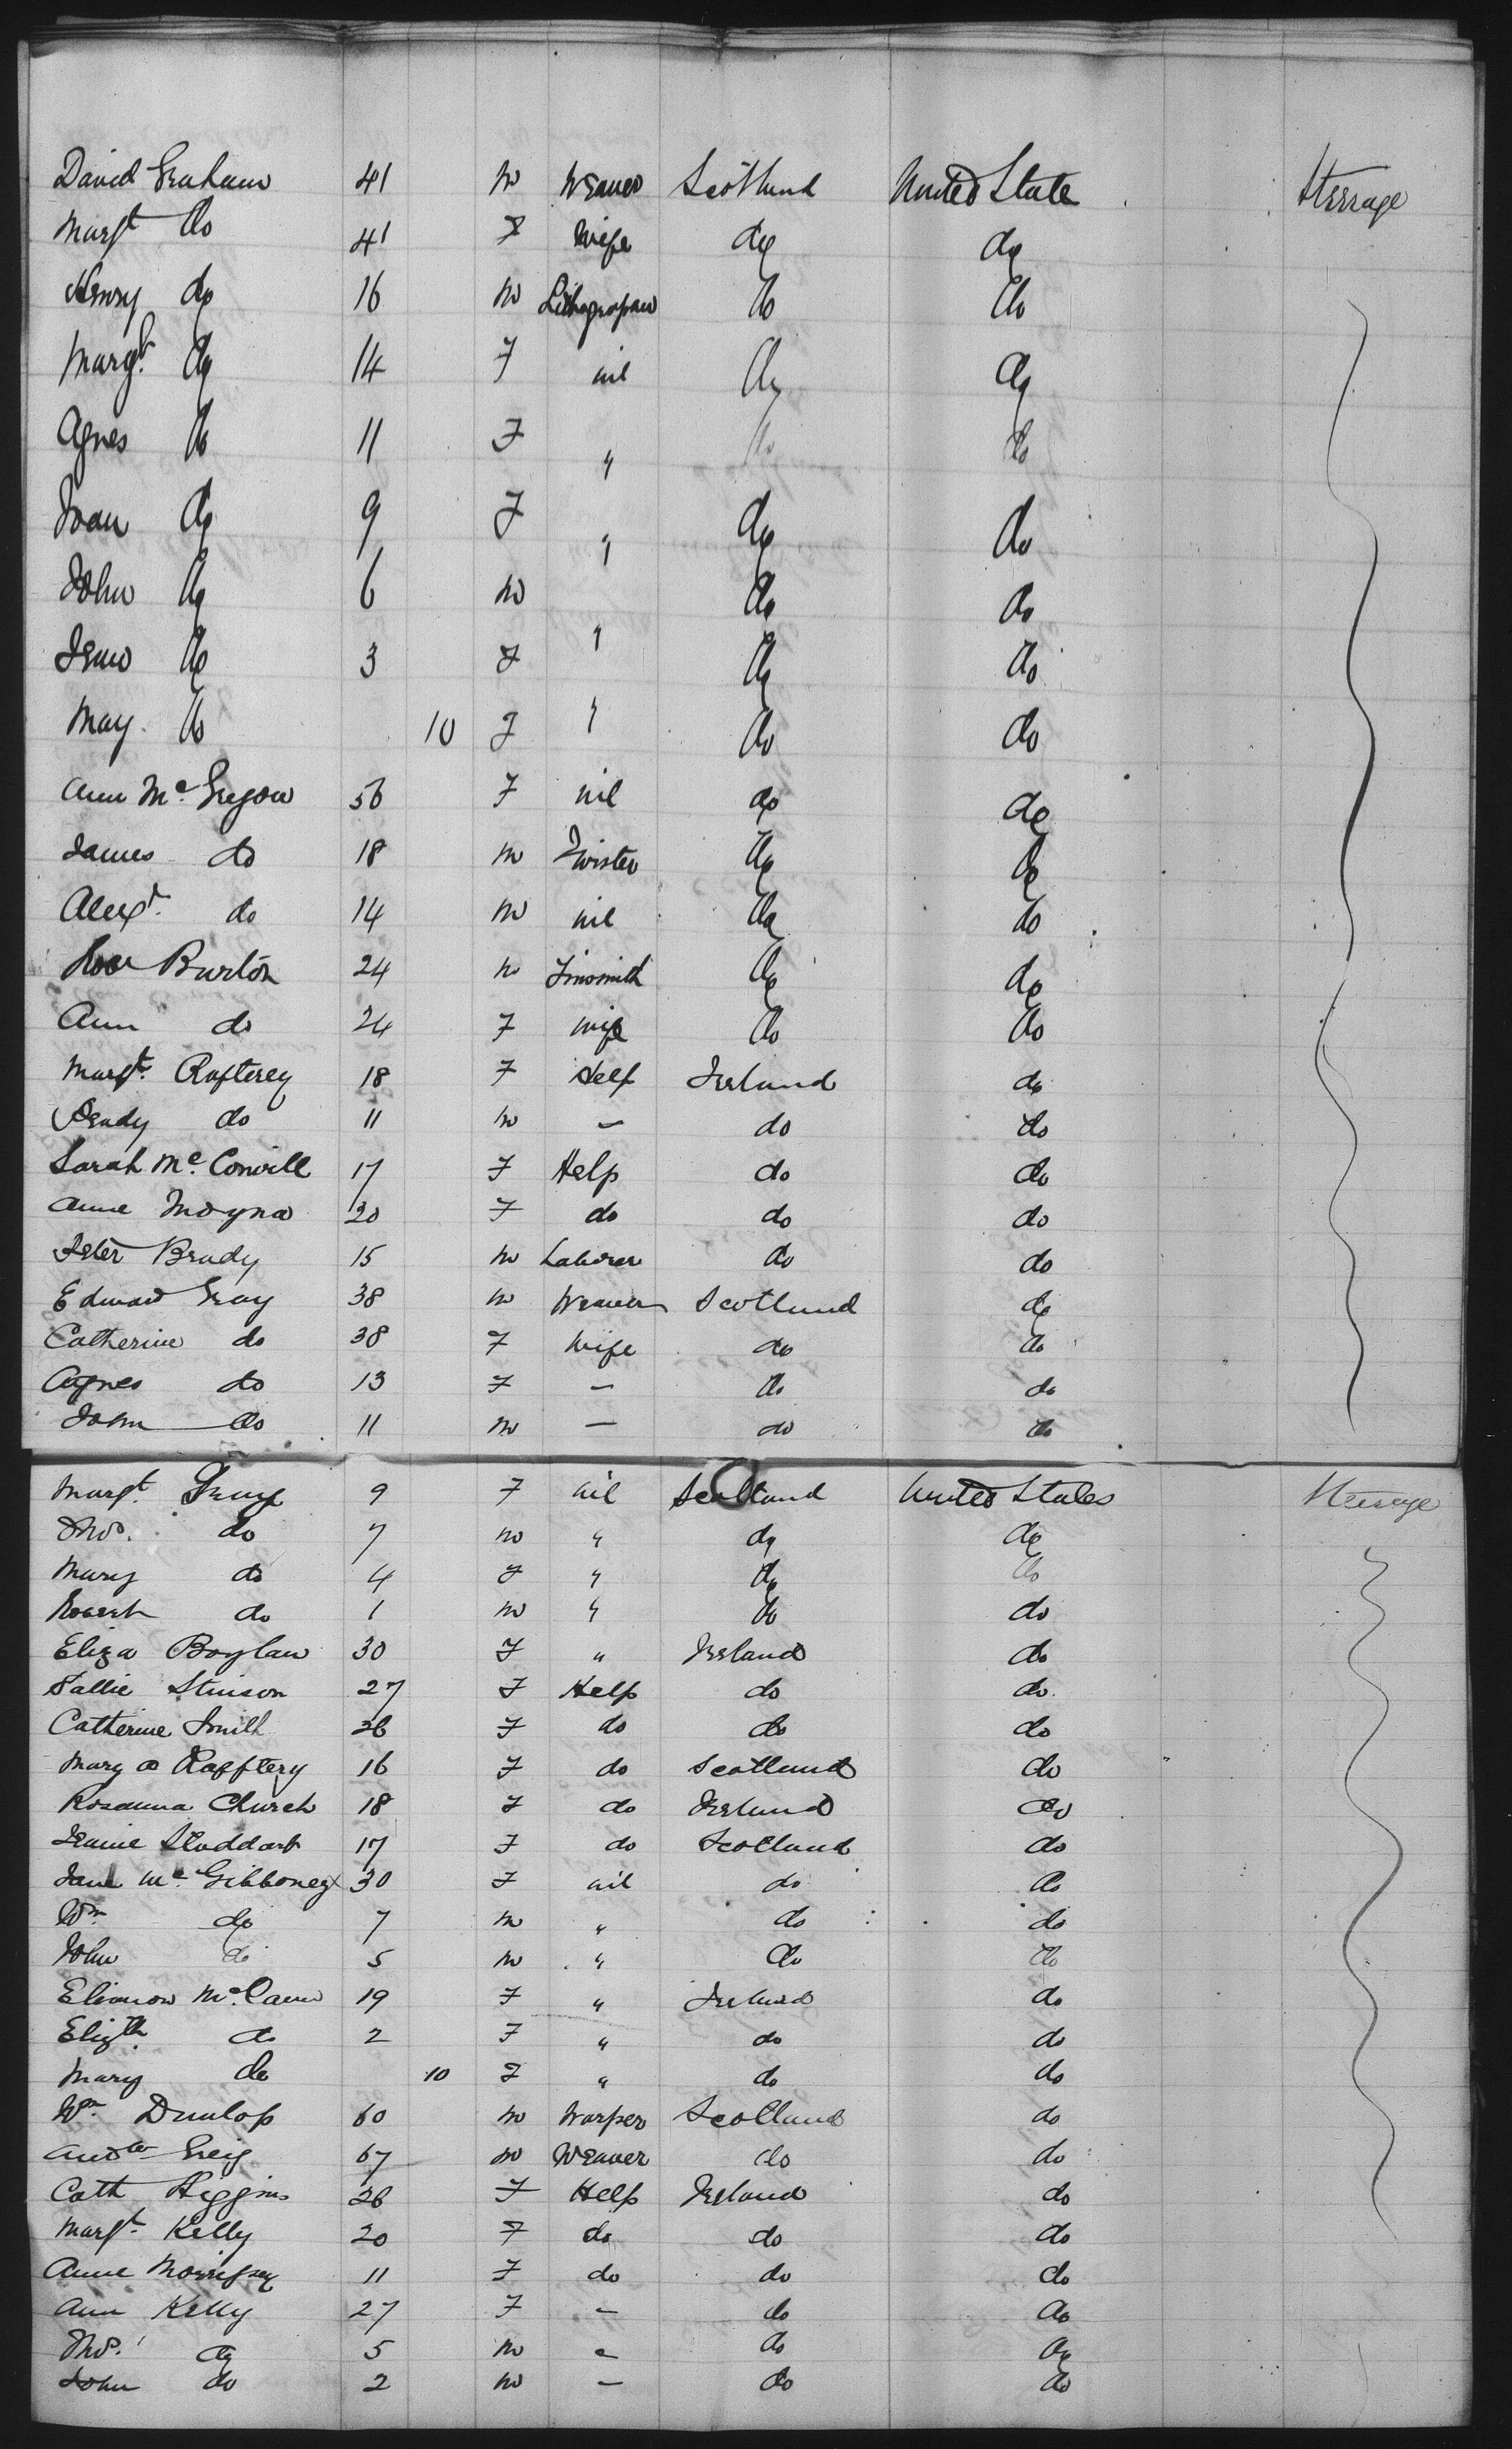 David Graham 41 M Weaver Scotland United State Steerage
Margt do 41 F Wife do do
Henry do 16 M do do
Margt. do 14 F nil do do
Agnes do 11 F " do do
Joan do 9 F " do do
John do 6 M " do do
Jean do 3 F " do do
May do 10 F " do do
Ann Mc. Gregor 56 F nil do do
James do 18 M Twister do do
Alexr. do 14 M nil do do
Robt Burton 24 M Tinsmith do do
Ann do 24 F wife do do
Margt. Rafterey 18 F Help Ireland do
do 11 M — do do
Sarah Mc. Conville 17 F Help do do
Anne Moyna 20 F do do do
Peter Brady 15 M Laborer do do
Edward Gray 38 M Weaver Scotland do
Catherine do 38 F Wife do do
Agnes do 13 F — do do
John do 11 M — do do
Margt. Gray 9 F nil Scotland United States Steerage
Thos. do 7 M " do do
Mary do 4 F " do do
Robert do 1 M " do do
Eliza Boylan 30 F " Ireland do
Sallie Stinson 27 F Help do do
Catherine Smith 26 F do do do
Mary a Rafftery 16 F do Scotland do
Rosanna Church 18 F do Ireland do
Jeanie Stoddart 17 F do Scotland do
Jane Mc. Gibboney 30 F nil do do
Wm do 7 M " do do
John do 5 M " do do
Elianor Mc. Cann 19 F " Ireland do
Elizth. do 2 F " do do
Mary do 10 F " do do
Wm. Dunlop 60 M Warper Scotland do
Greig 67 M Weaver do do
Cath Higgins 26 F Help Ireland do
Margt. Kelly 20 F do do do
Anne Morrisey 11 F do do do
Ann Kelly 27 F — do do
Thos. do 5 M — do do
John do 2 M — do do